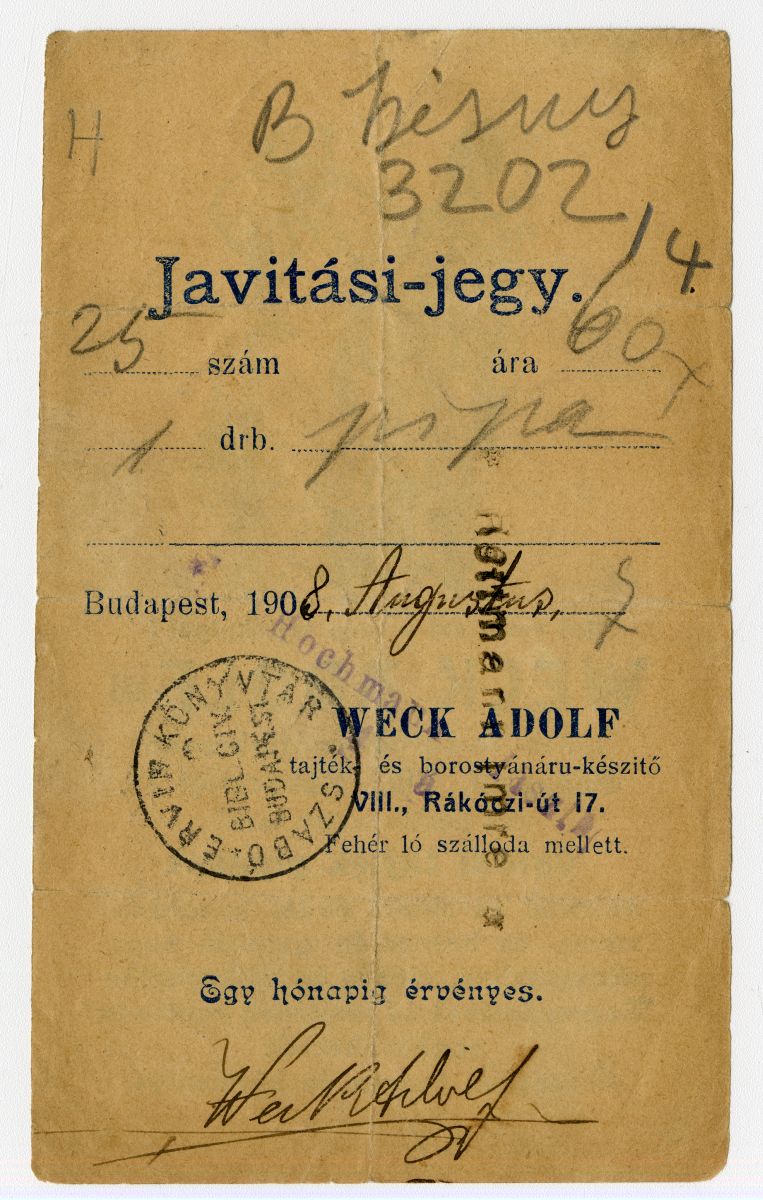 H
B
3202
/4
Javitási-jegy.
25 szám ára 60
1 drb. pipa
Budapest, 1908, Augustus,
WECK ADOLF
tajték- és borostyánáru-készitő
VIII., Rákóczi-út 17.
Fehér ló szálloda mellett.
Egy hónapig érvényes.
Weck Adolf
SZABÓ ERVIN KÖNYVTÁR
BUDAPEST